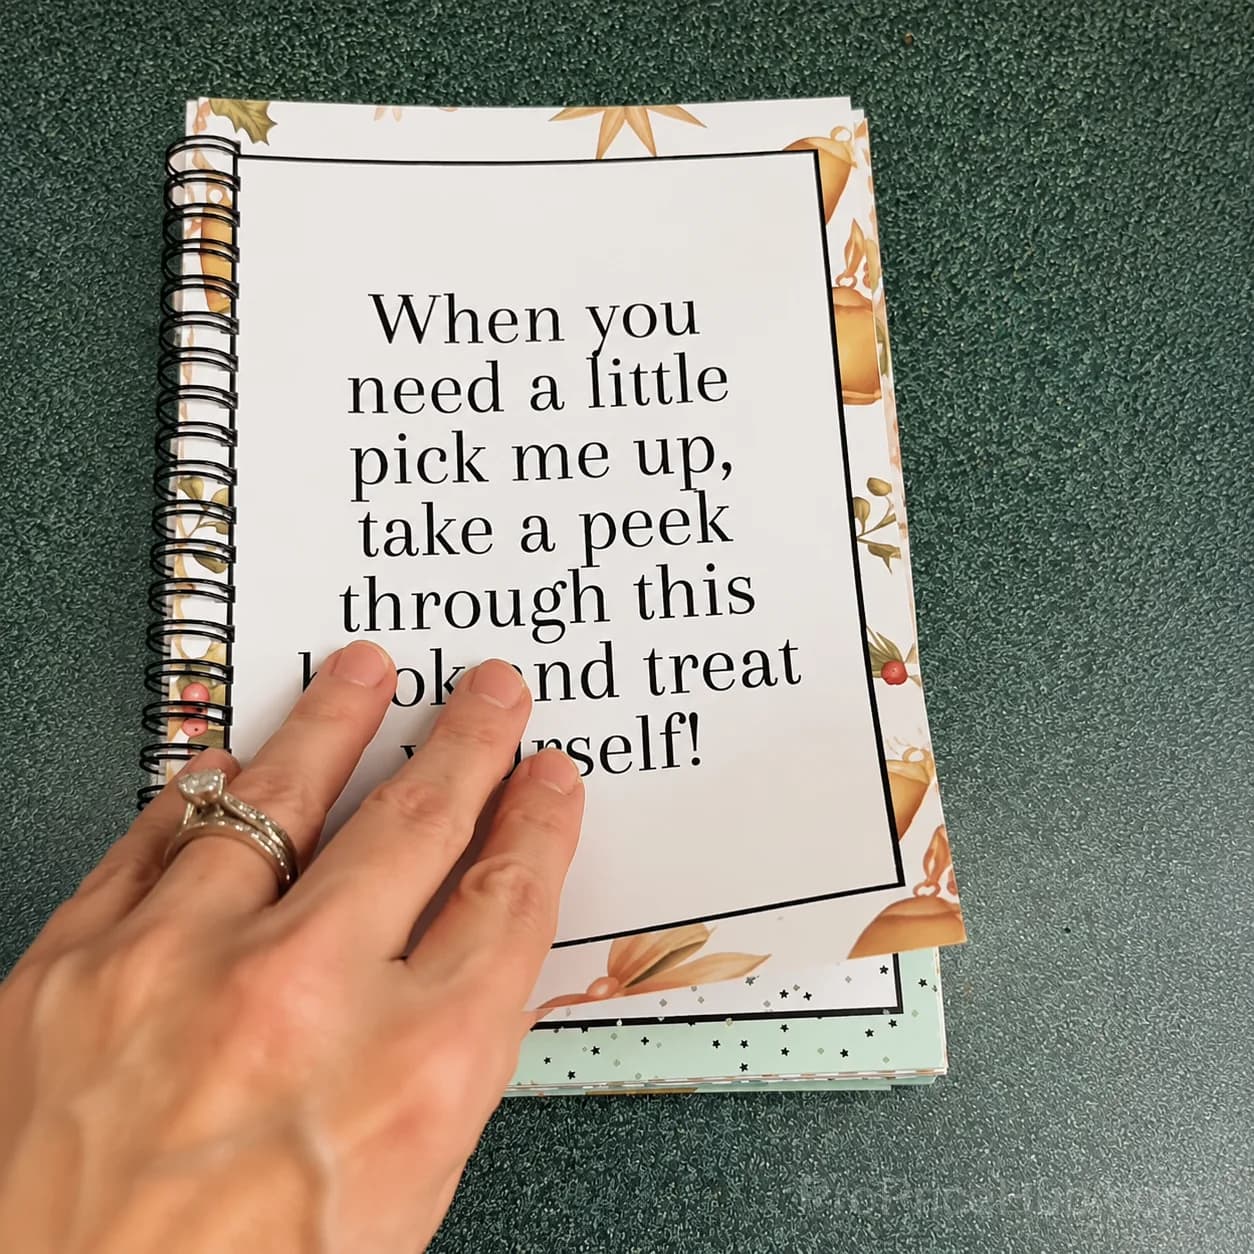 When you
need a little
pick me up,
take a peek
through this
book and treat
yourself!